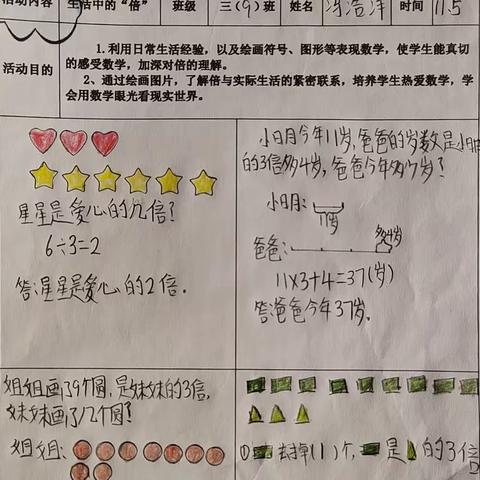 活动内容 生活中的“倍” 班级 三(9)班 姓名 冯浩洋 时间 11.5
活动目的
1.利用日常生活经验，以及绘画符号、图形等表现数学，使学生能真切
的感受数学，加深对倍的理解。
2、通过绘画图片，了解倍与实际生活的紧密联系，培养学生热爱数学，学
会用数学眼光看现实世界。
星星是爱心的几倍？
6÷3=2
答：星星是爱心的2倍。
小明今年11岁，爸爸的岁数是小明
的3倍多4岁，爸爸今年多少岁？
小明：
11岁
多4岁
爸爸：
11×3+4=37(岁)
答：爸爸今年37岁。
姐姐画了9个圆，是妹妹的3倍，
妹妹画了几个圆？
姐姐：
①去掉(1)个，是的3倍